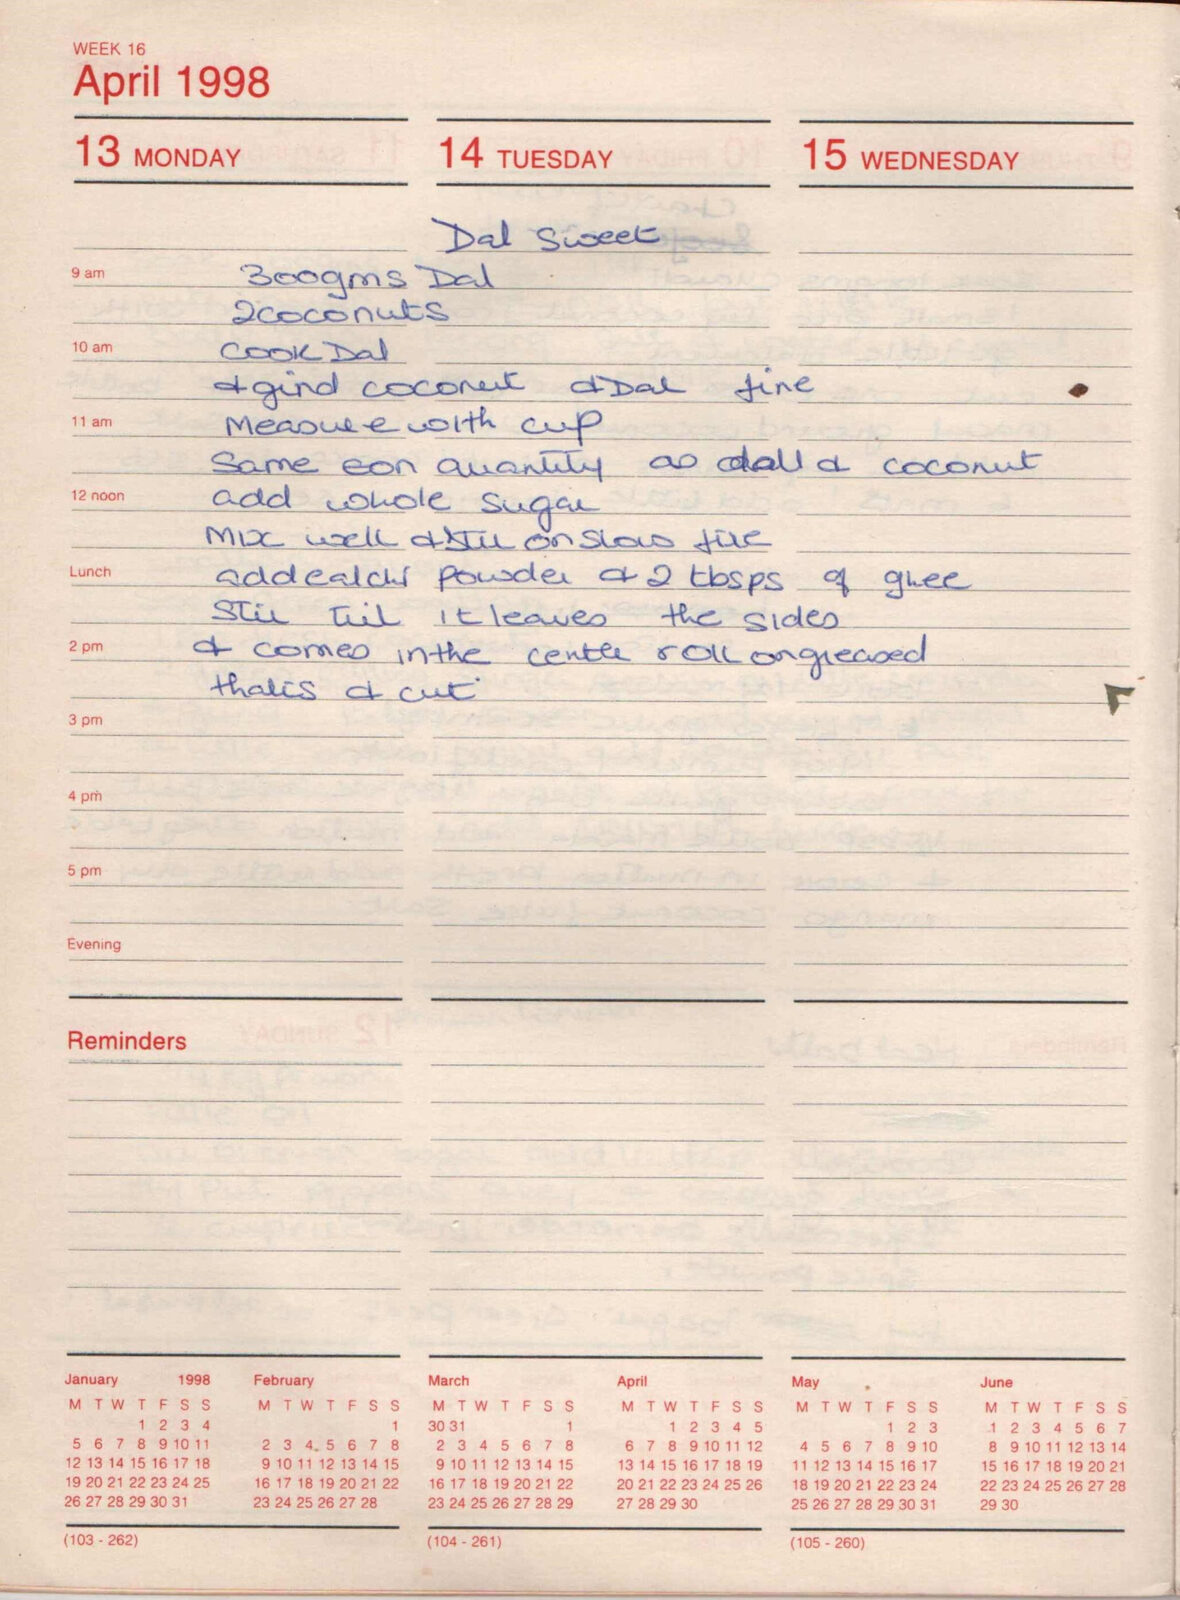 WEEK 16
April 1998
13 MONDAY
14 TUESDAY
15 WEDNESDAY
Dal Sweet
9 am
300gms Dal
2 coconuts
10 am
Cook Dal
& gind coconut & Dal fine
11 am
Measure with cup
Same quantity as dall & coconut
12 noon
add whole sugar
Mix well & stir on slow fire
Lunch
add ealchi powder & 2 tbsps of ghee
Stir till it leaves the sides
2 pm
& comes in the centre roll on greased
thalis & cut
3 pm
4 pm
5 pm
Evening
Reminders
January 1998
M T W T F S S
1 2 3 4
5 6 7 8 9 10 11
12 13 14 15 16 17 18
19 20 21 22 23 24 25
26 27 28 29 30 31
February
M T W T F S S
1
2 3 4 5 6 7 8
9 10 11 12 13 14 15
16 17 18 19 20 21 22
23 24 25 26 27 28
March
M T W T F S S
30 31 1
2 3 4 5 6 7 8
9 10 11 12 13 14 15
16 17 18 19 20 21 22
23 24 25 26 27 28 29
April
M T W T F S S
1 2 3 4 5
6 7 8 9 10 11 12
13 14 15 16 17 18 19
20 21 22 23 24 25 26
27 28 29 30
May
M T W T F S S
1 2 3
4 5 6 7 8 9 10
11 12 13 14 15 16 17
18 19 20 21 22 23 24
25 26 27 28 29 30 31
June
M T W T F S S
1 2 3 4 5 6 7
8 9 10 11 12 13 14
15 16 17 18 19 20 21
22 23 24 25 26 27 28
29 30
(103 - 262)
(104 - 261)
(105 - 260)